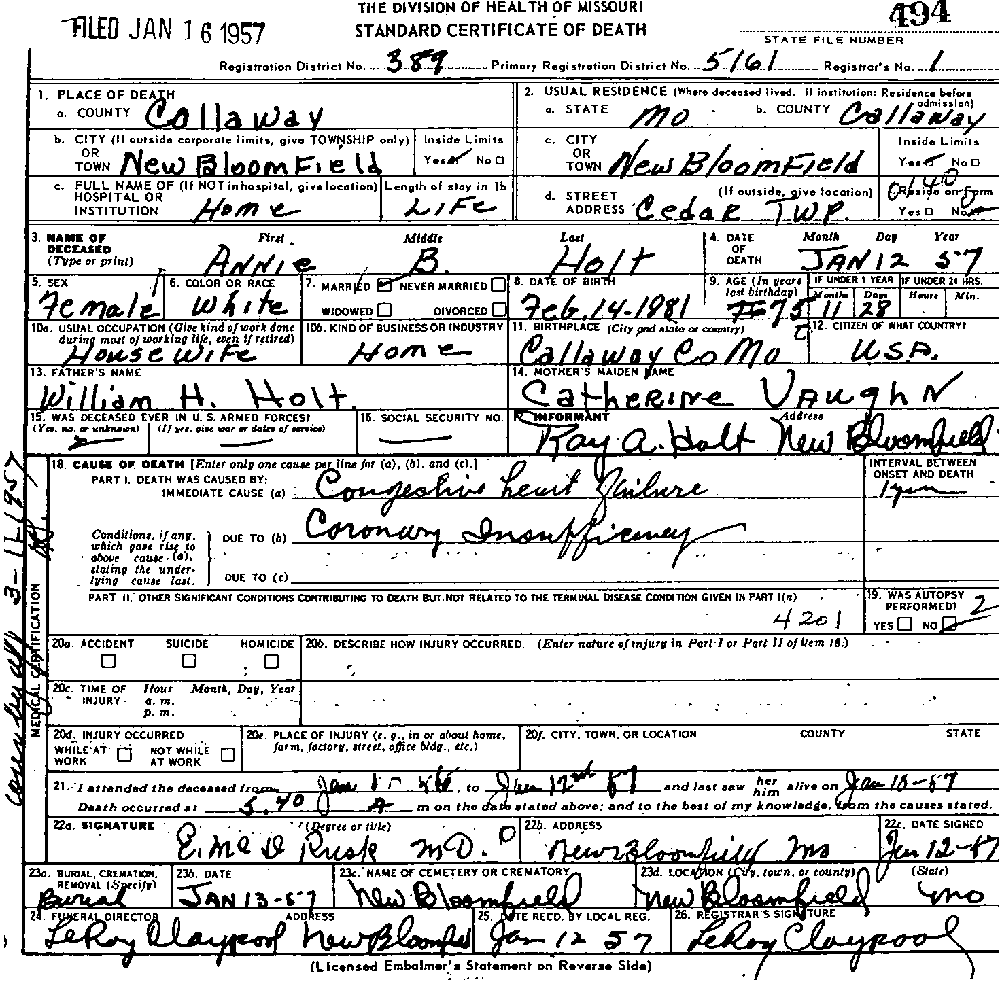 THE DIVISION OF HEALTH OF MISSOURI
494
FILED JAN 16 1957
STANDARD CERTIFICATE OF DEATH
STATE FILE NUMBER
Registration District No. 389 Primary Registration District No. 5161 Registrar's No. 1
1. PLACE OF DEATH
a. COUNTY Callaway
2. USUAL RESIDENCE (Where deceased lived. If institution: Residence before admission)
a. STATE Mo b. COUNTY Callaway
b. CITY (If outside corporate limits, give TOWNSHIP only) OR TOWN New Bloomfield
Inside Limits Yes No
c. CITY OR TOWN New Bloomfield
Inside Limits Yes No
c. FULL NAME OF (If NOT in hospital, give location) HOSPITAL OR INSTITUTION Home
Length of stay in 1b LiFe
d. STREET ADDRESS (If outside, give location) Cedar TWP.
Reside on Farm Yes No
0140
3. NAME OF DECEASED (Type or print)
First Middle Last
Annie B. Holt
4. DATE OF DEATH Month Day Year
JAN 12 57
5. SEX Female
6. COLOR OR RACE White
7. MARRIED NEVER MARRIED WIDOWED DIVORCED
8. DATE OF BIRTH Feb. 14-1981
9. AGE (In years last birthday) 75
IF UNDER 1 YEAR Months 11 Days 28
IF UNDER 24 HRS. Hours Min.
10a. USUAL OCCUPATION (Give kind of work done during most of working life, even if retired) HouseWife
10b. KIND OF BUSINESS OR INDUSTRY Home
11. BIRTHPLACE (City and state or country) Callaway Co Mo
12. CITIZEN OF WHAT COUNTRY? U.S.A.
13. FATHER'S NAME William H. Holt.
14. MOTHER'S MAIDEN NAME Catherine Vaughn
15. WAS DECEASED EVER IN U. S. ARMED FORCES? (Yes, no, or unknown) (If yes, give war or dates of service)
16. SOCIAL SECURITY NO.
INFORMANT Address
Ray A. Holt New Bloomfield
18. CAUSE OF DEATH [Enter only one cause per line for (a), (b), and (c).]
INTERVAL BETWEEN ONSET AND DEATH
PART I. DEATH WAS CAUSED BY:
IMMEDIATE CAUSE (a) Congestive heart failure
Conditions, if any, which gave rise to above cause (a), stating the underlying cause last.
DUE TO (b) Coronary Insufficiency
DUE TO (c)
PART II. OTHER SIGNIFICANT CONDITIONS CONTRIBUTING TO DEATH BUT NOT RELATED TO THE TERMINAL DISEASE CONDITION GIVEN IN PART I(a)
4201
19. WAS AUTOPSY PERFORMED? 2
YES NO
MEDICAL CERTIFICATION
20a. ACCIDENT SUICIDE HOMICIDE
20b. DESCRIBE HOW INJURY OCCURRED. (Enter nature of injury in Part I or Part II of item 18.)
20c. TIME OF INJURY Hour Month, Day, Year
a. m.
p. m.
20d. INJURY OCCURRED
WHILE AT WORK NOT WHILE AT WORK
20e. PLACE OF INJURY (e. g., in or about home, farm, factory, street, office bldg., etc.)
20f. CITY, TOWN, OR LOCATION COUNTY STATE
21. I attended the deceased from Jan to Jan 12nd 57 and last saw her him alive on Jan 10-57
Death occurred at 5.40 A m on the date stated above; and to the best of my knowledge, from the causes stated.
22a. SIGNATURE (Degree or title)
E. McD Rusk MD.
22b. ADDRESS
New Bloomfield Mo
22c. DATE SIGNED
Jan 12-57
23a. BURIAL, CREMATION, REMOVAL (Specify) Burial
23b. DATE JAN 13-57
23c. NAME OF CEMETERY OR CREMATORY New Bloomfield
23d. LOCATION (City, town, or county) (State)
New Bloomfield Mo
24. FUNERAL DIRECTOR ADDRESS
LeRoy Claypool New Bloomfield
25. DATE RECD. BY LOCAL REG.
Jan 12 57
26. REGISTRAR'S SIGNATURE
LeRoy Claypool
(Licensed Embalmer's Statement on Reverse Side)